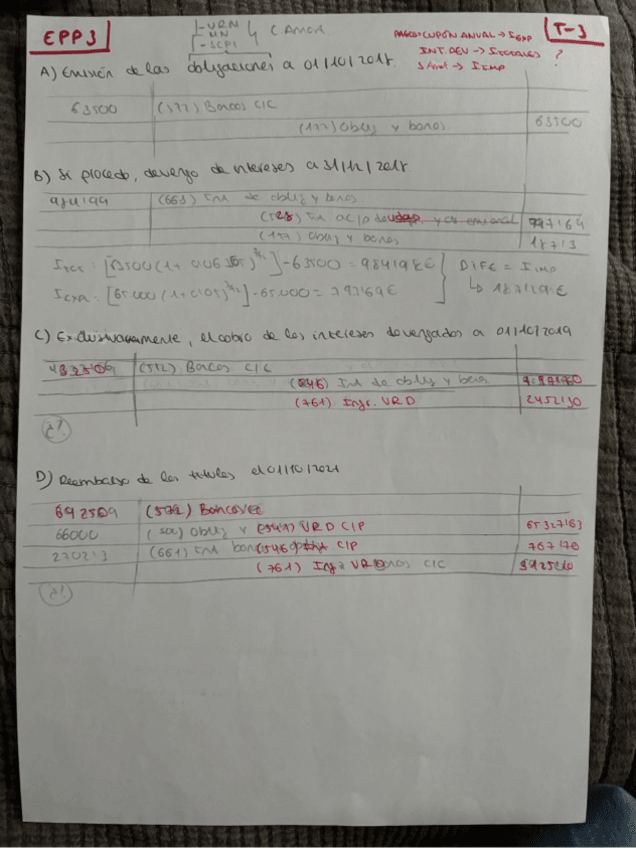 EPP3
-VRN
-NN
-SCPI
C Amort.
PAGO: CUPÓN ANUAL → IEXP
INT. DEV → ITOTALES ?
→ IIMP
T-3
A) Emisión de las obligaciones a 01/10/2018.
63500 (572) Bancos C/C
(177) Oblig y bonos 63500
B) Si procede, devengo de intereses a 31/12/2018
984'94 (661) Int de oblig y bonos
(528) Int a C/P de 797'69
(177) Oblig y bonos 187'3
ITOT: [63500 (1+0'0636)^3/12] - 63500 = 984'98€
IEXP: [65.000 (1+0'05)^3/12] - 65.000 = 797'69€
DIFE = IIMP
↳ 187'29€
C) Exclusivamente, el cobro de los intereses devengados a 01/10/2019
(572) Bancos C/C
(546) Int de oblig y bonos
(761) Ingr. VRD 2452'30
¿?
D) Reembolso de los títulos el 01/10/2021
692509 (572) Bancos
66000 (500) Oblig y (541) VRD C/P 65327'63
2702'3 (661) Int (546) C/P 767'70
(761) VRD C/C
¿?